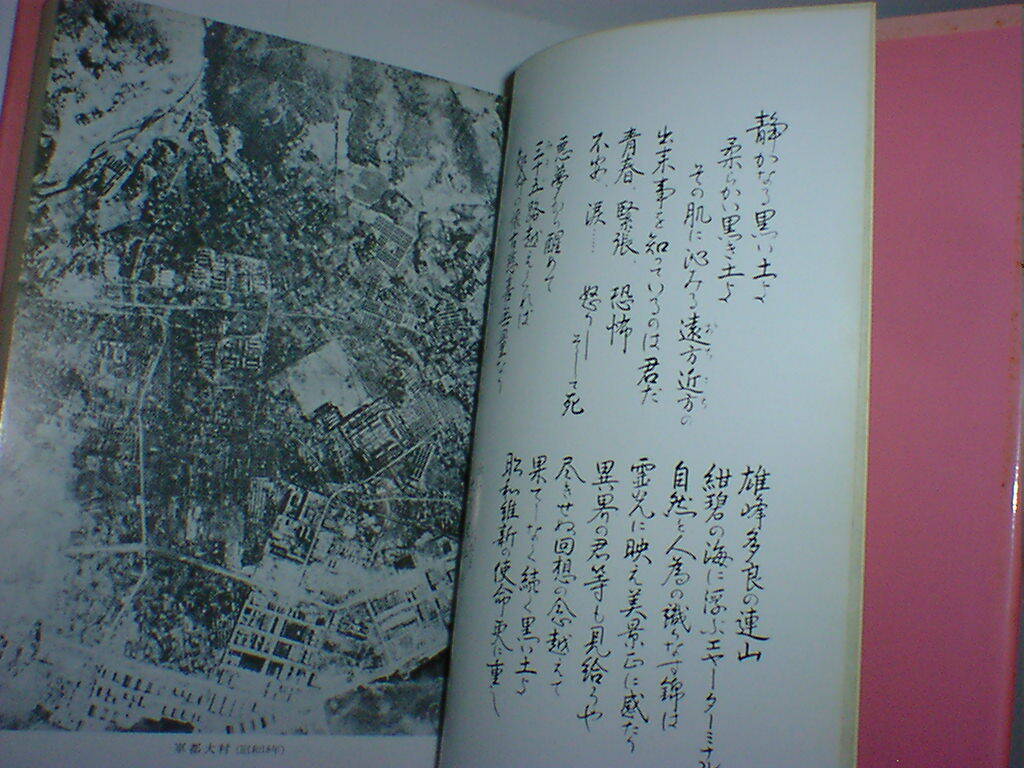 静かなる黒い土よ
柔らかい黒き土よ
その肌に沁みる遠方近方の
出来事を知っているのは君だ
青春、緊張、恐怖
不安、涙……怒り―そして死
悪夢から醒めて
三十五路越えくれば
雄峰多良の連山
紺碧の海に浮ぶエヤーターミナル
自然と人為の織りなす錦は
霊光に映え美景正に盛たり
異界の君等も見給うや
尽きせぬ回想の念越えて
果てしなく続く黒い土よ
昭和維新の使命更に重し
軍都大村（昭和18年）